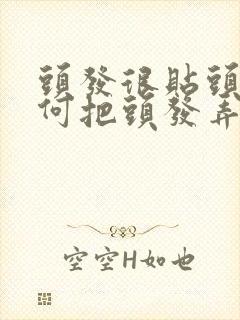 頭發很貼頭
何把頭發弄
空空H如也